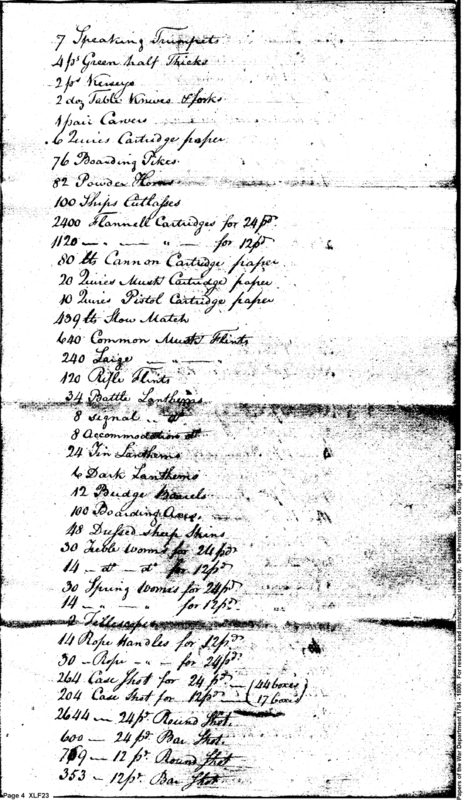 7 Speaking Trumpets
4 ps Green half Thicks
2 ps Kerseys
2 doz Table Knives & forks
1 pair Carvers
6 Quires Cartridge paper
76 Boarding Pikes
82 Powder Horns
100 Ships Cutlasses
2400 Flannell Cartridges for 24 pd.
1120 — " — — " — for 12 pd.
80 lb Cannon Cartridge paper
20 Quires Musk Cartridge paper
10 Quires Pistol Cartridge paper
439 lb Slow Match
640 Common Musk Flints
240 Large — " —
120 Rifle Flints
34 Battle Lanthorns
8 Signal " dt
8 Accommodation dt
24 Tin Lanthorns
6 Dark Lanthorns
12 Budge Barrels
100 Boarding Axes
48 Dressed sheep Skins
30 worms for 24 pd.
14 — dt — dt for 12 pd.
30 Spring worms for 24 pd.
14 — " — " for 12 pd.
2
14 Rope Handles for 12 pd.
30 — Rope — " — for 24 pd.
264 Case Shot for 24 pd. — (44 boxes
204 Case Shot for 12 pd. — (17 boxes
2644 — 24 pd. Round Shot.
600 — 24 pd. Bar Shot.
769 — 12 pd. Round Shot
353 — 12 pd. Bar Shot
Page 4 XLF23
Papers of the War Department 1784 - 1800. For research and instructional use only. See Permissions Guide. Page 4 XLF23